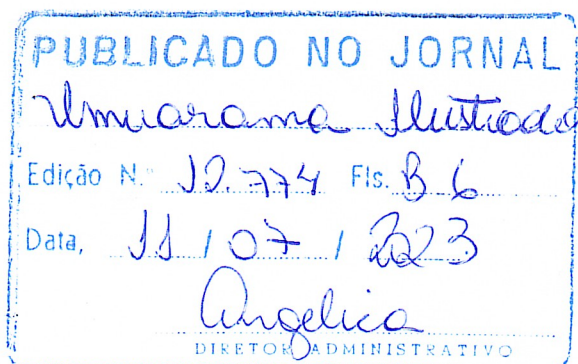 PUBLICADO NO JORNAL
Umuarama Ilustrado
Edição N.º 12.774 Fls. B-6
Data, 11 / 07 / 2023
Angelica
DIRETOR ADMINISTRATIVO